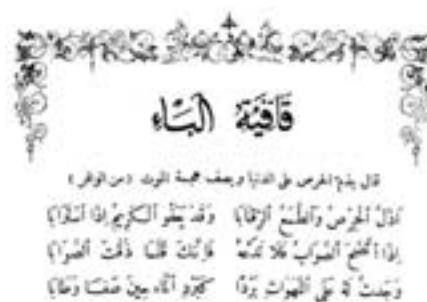 قَافِيَةُ البَاءِ
قال يذم الحرص على الدنيا ويصف هجمة الموت (من الوافر)
أَذَلَّ الْحِرْصُ وَالطَّمَعُ الرِّقَابَا وَقَدْ يَعْفُو الْكَرِيمُ إِذَا اسْتَرَابَا
إِذَا اتَّضَحَ الصَّوَابُ فَلَا تَدَعْهُ فَإِنَّكَ قَلَّمَا ذُقْتَ الصَّوَابَا
وَجَدْتَ لَهُ عَلَى اللَّهَوَاتِ بَرْدًا كَبَرْدِ الْمَاءِ حِينَ صَفَا وَطَابَا